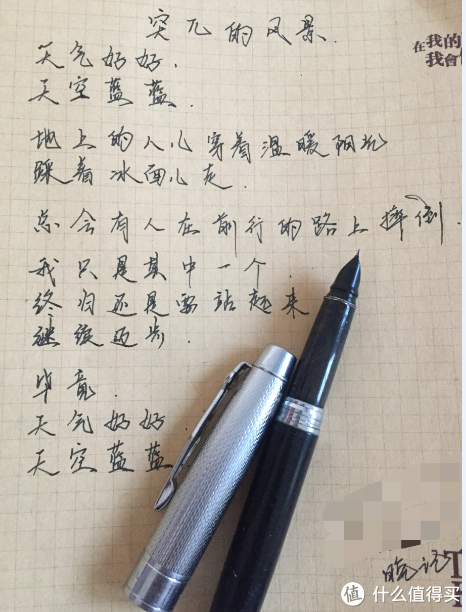 突兀的风景.
在我的
我會
天气好好.
天空蓝蓝.
地上的人儿穿着温暖阳光
踩着冰面儿走.
总会有人在前行的路上摔倒.
我只是其中一个.
终归还是要站起来
继续迈步.
毕竟.
天气好好
天空蓝蓝
晓记
值 什么值得买